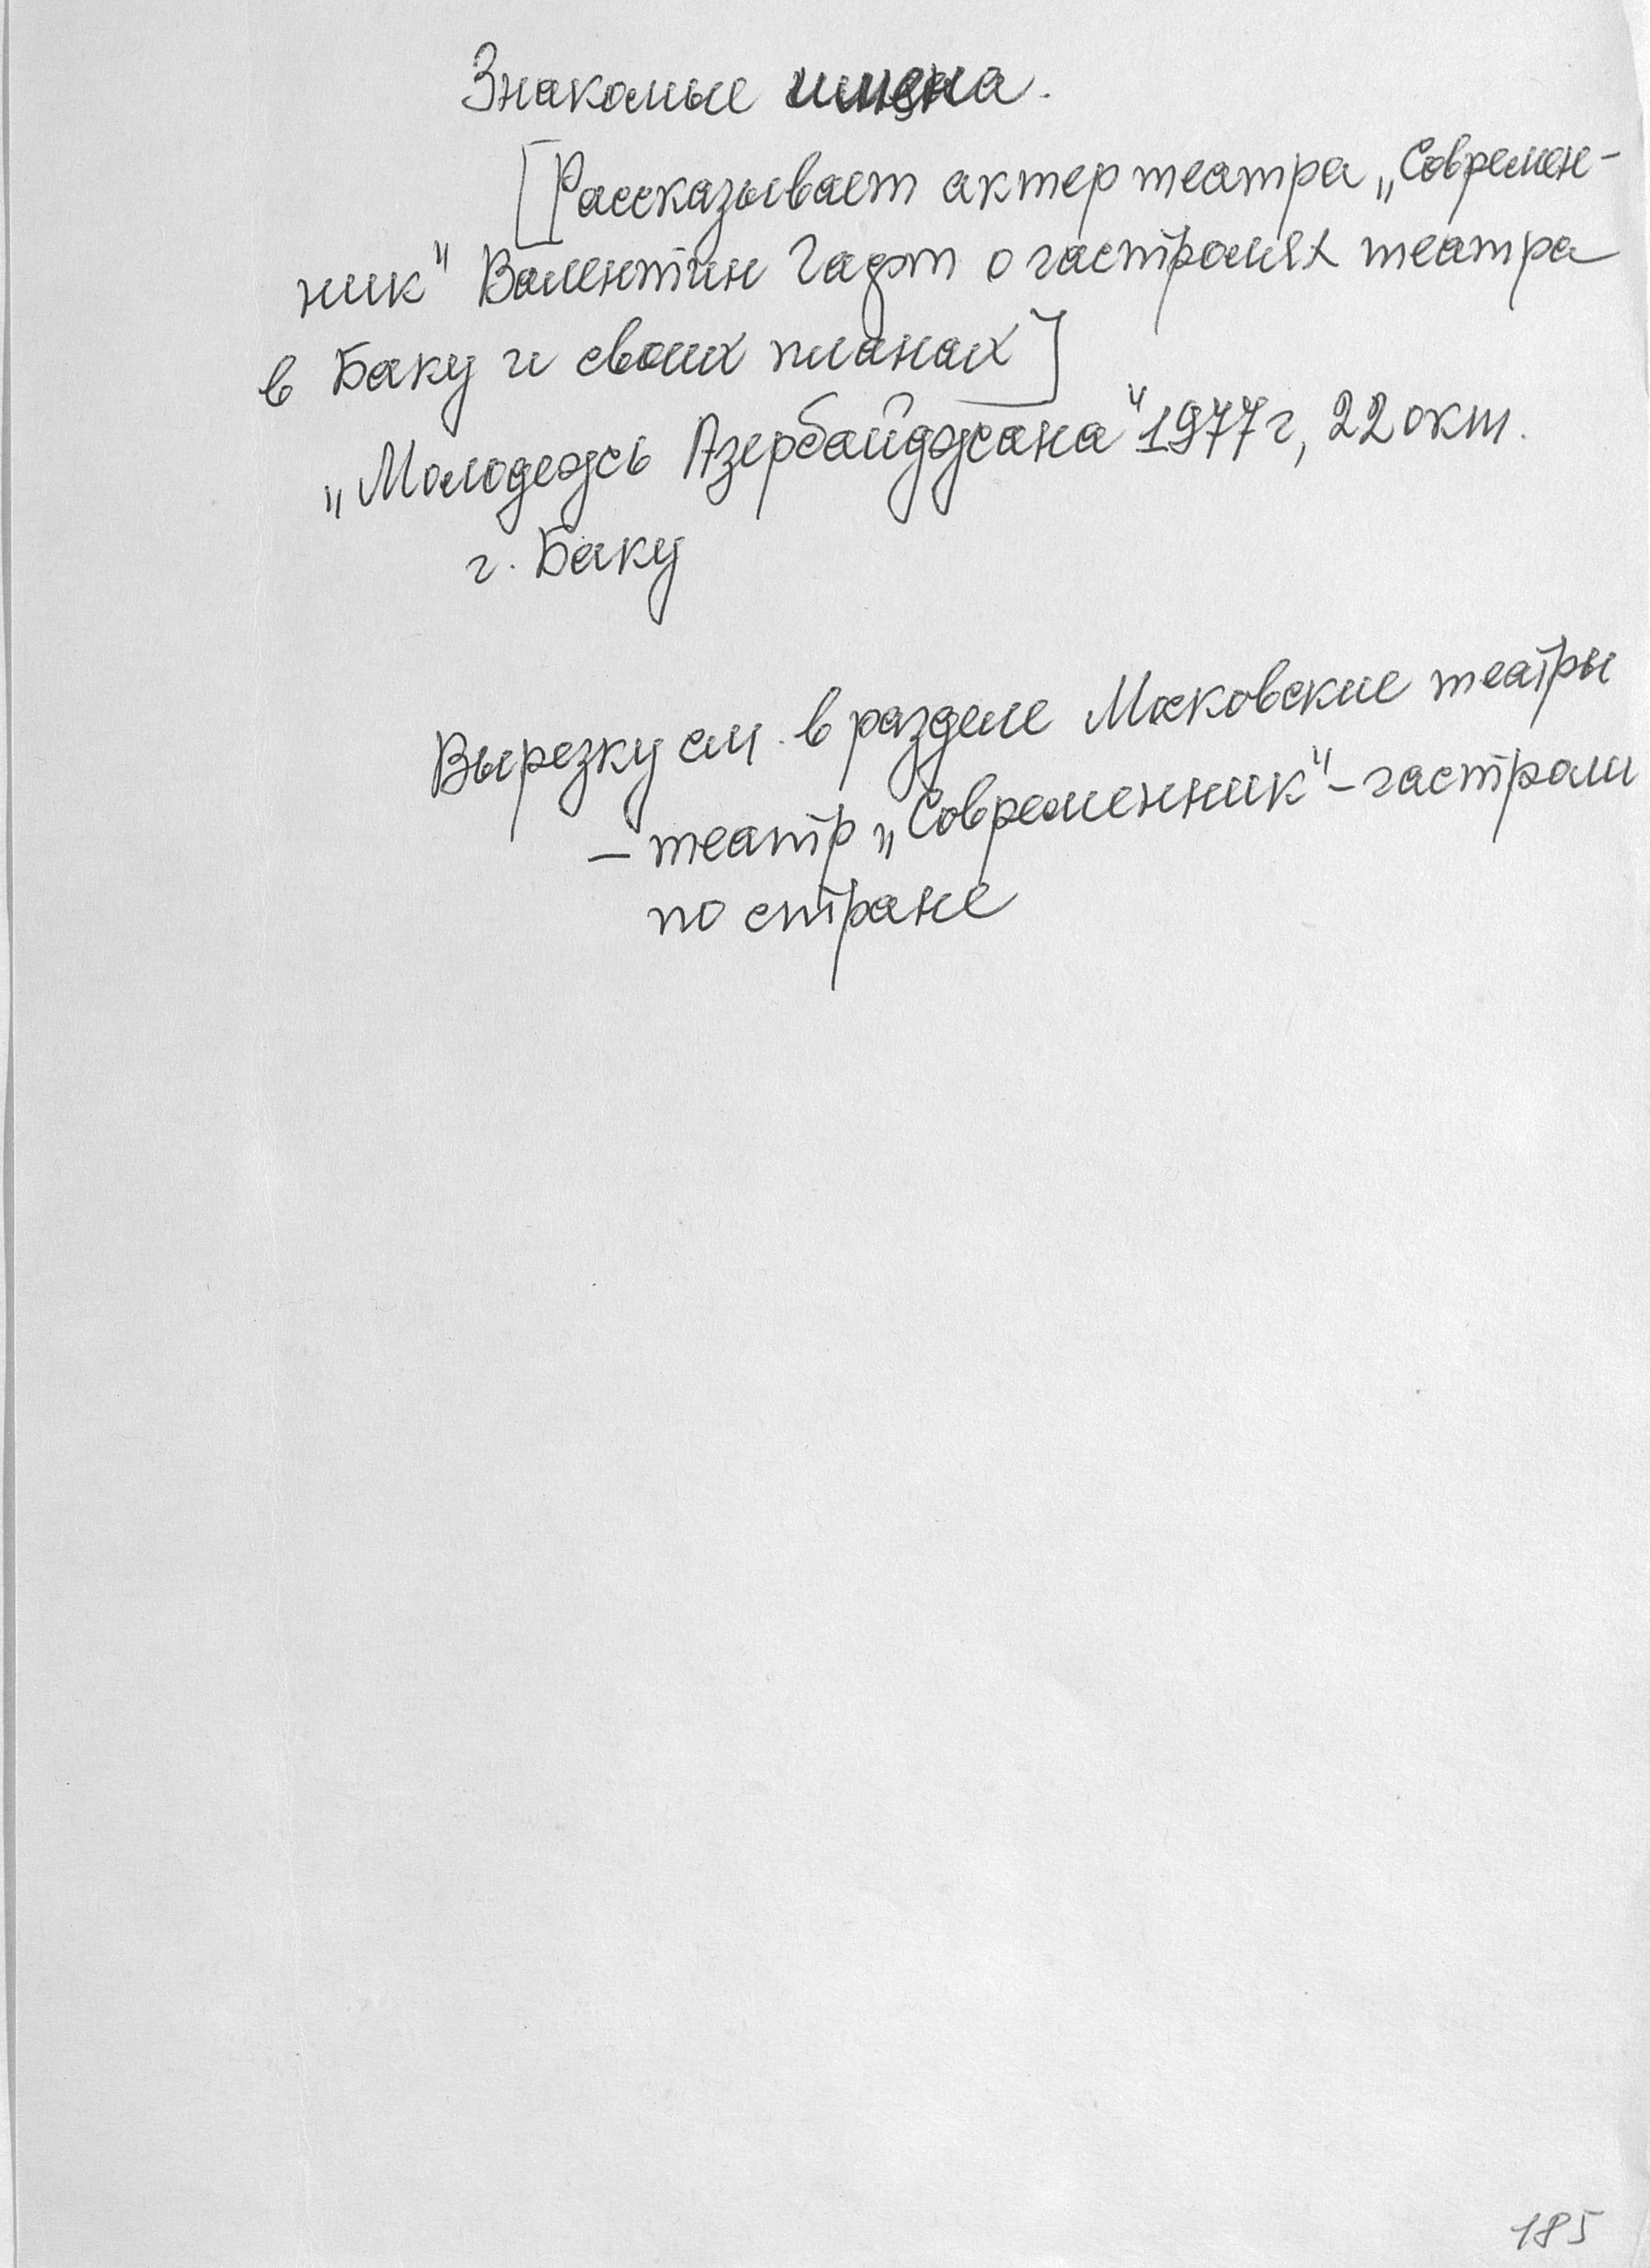 Знакомые имена.
[Рассказывает актер театра „Современ-
ник" Валентин Гафт о гастролях театра
в Баку и своих планах]
„Молодежь Азербайджана" 1977 г, 22 окт.
г. Баку
Вырезку см. в разделе Московские театры
– театр „Современник" – гастроли
по стране
185